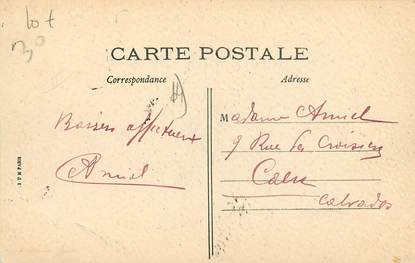 lot
30
CARTE POSTALE
Correspondance
Adresse
Baisers affectueux
Amiel
Madame Amiel
9 Rue des Croisiers
Caen
Calvados